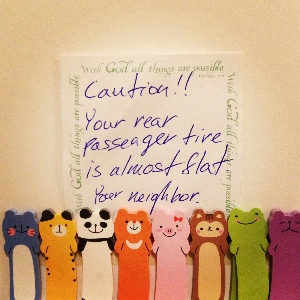 With God all things are possible
Caution!!
Your rear
passenger tire
is almost flat
Your neighbor.
With God all things are possible
With God all things are possible